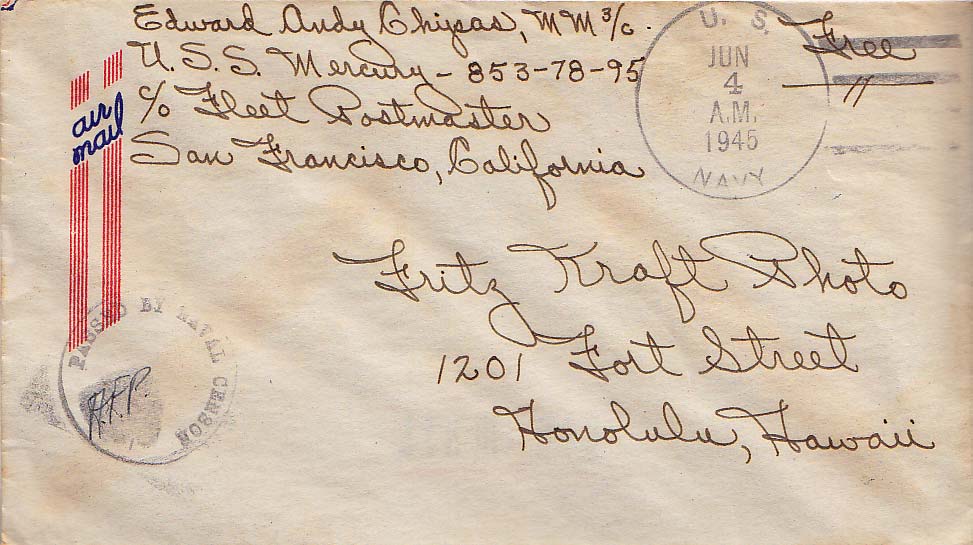 Edward Andy Chipas, MM 3/c.
U.S.S. Mercury - 853-78-95
c/o Fleet Postmaster
San Francisco, California
air
mail
U. S.
JUN
4
A.M.
1945
NAVY
Free
Fritz Kraft Photo
1201 Fort Street
Honolulu, Hawaii
PASSED BY NAVAL CENSOR